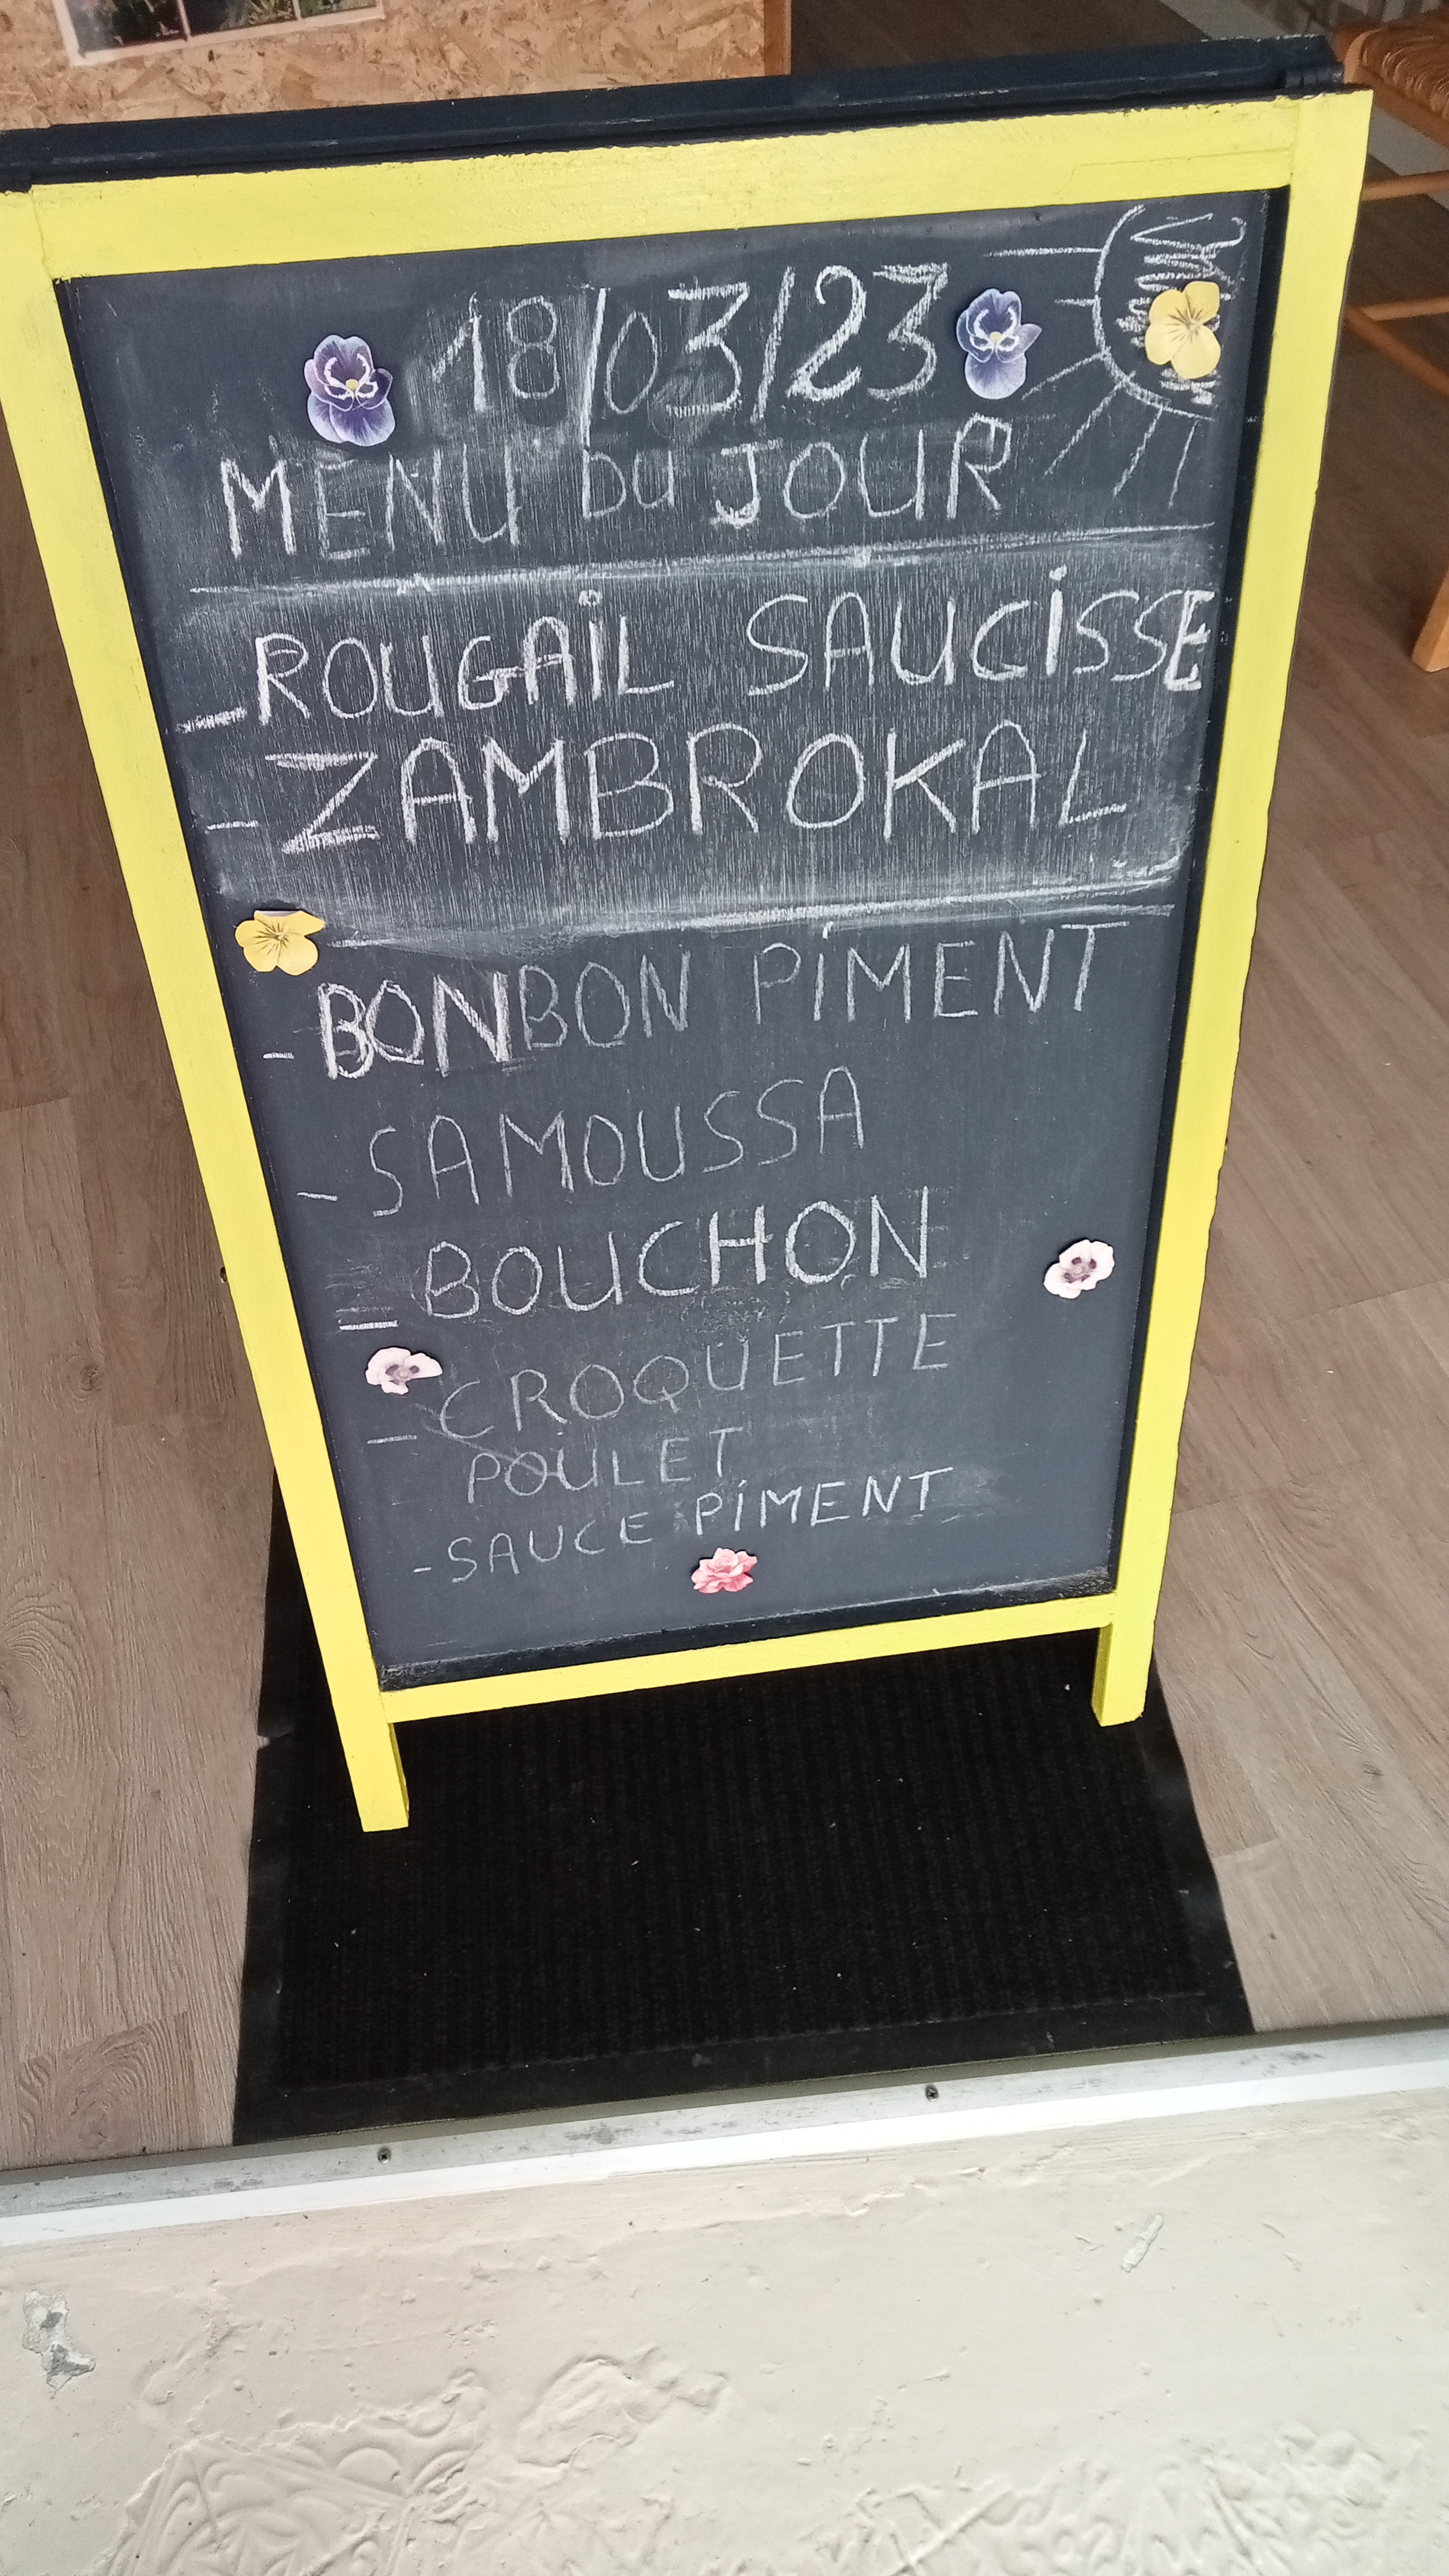 18/03/23
MENU DU JOUR
- ROUGAIL SAUCISSE
- ZAMBROKAL
- BONBON PIMENT
- SAMOUSSA
- BOUCHON
- CROQUETTE
POULET
- SAUCE PIMENT